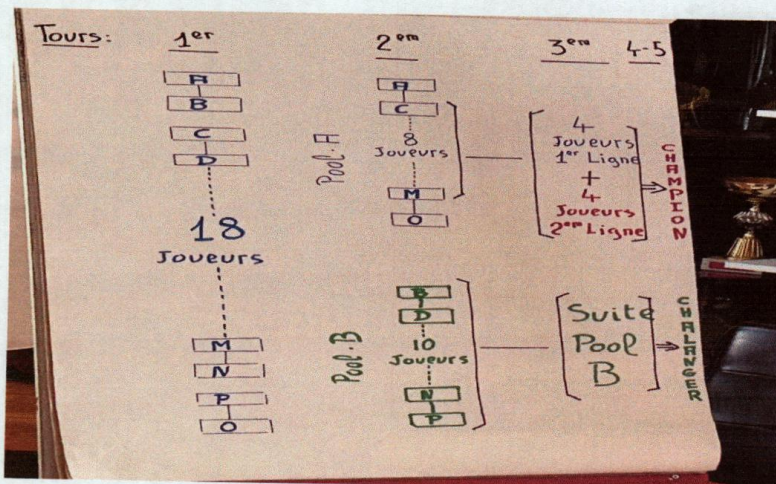 Tours: 1er 2em 3em 4-5
A
B
C
D
18
Joueurs
M
N
P
O
Pool.A
A
C
8
Joueurs
M
O
4
Joueurs
1er Ligne
+
4
Joueurs
2em Ligne
CHAMPION
Pool.B
B
D
10
Joueurs
N
P
Suite
Pool
B
CHALANGER